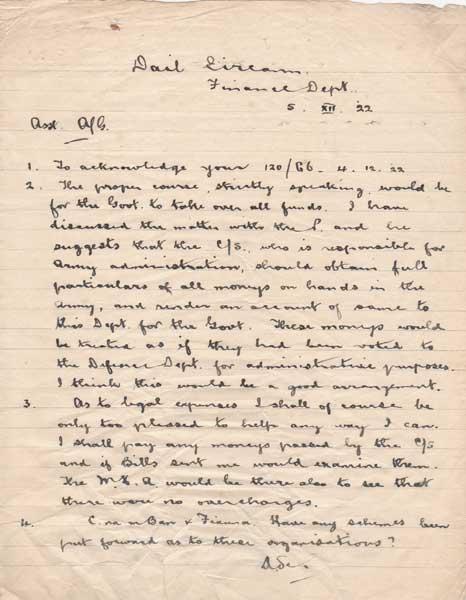 Dail Eireann.
Finance Dept.
5. XII. 22
Asst. A/G.
1. To acknowledge your 120/ - 4.12.22
2. The proper course, strictly speaking, would be
for the Govt. to take over all funds. I have
discussed the matter with the P. and he
suggests that the C/S., who is responsible for
Army administration, should obtain full
particulars of all moneys on hands in the
Army, and render an account of same to
this Dept. for the Govt. These moneys would
be treated as if they had been voted to
the Defence Dept. for administrative purposes.
I think this would be a good arrangement.
3. As to legal expenses I shall of course be
only too pleased to help any way I can.
I shall pay any moneys passed by the C/S
and if Bills sent me would examine them.
The would be there also to see that
there were no overcharges.
4. C. na mBan & Fianna. Have any schemes been
put forward as to these organisations?